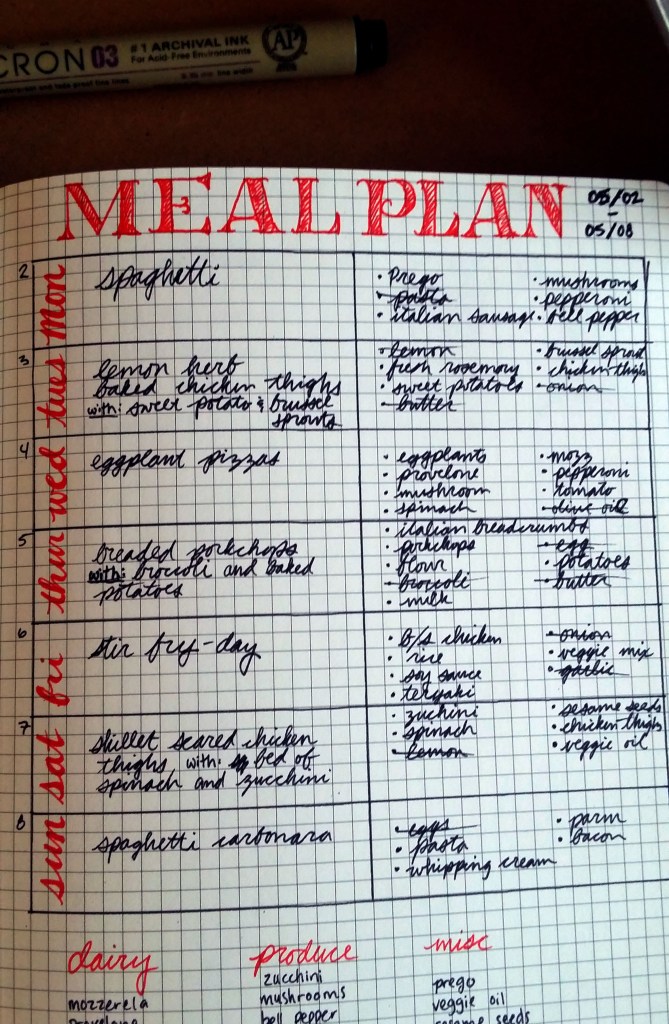 CRON 03 #1 ARCHIVAL INK
For Acid-Free Environments
AP
MEAL PLAN
05/02
-
05/08
2 Mon
spaghetti
• Prego
• pasta
• italian sausage
• mushrooms
• pepperoni
• bell pepper
3 tues
lemon herb
baked chicken thighs
with: sweet potato & brussel
sprouts
• lemon
• fresh rosemary
• sweet potatoes
• butter
• brussel sprout
• chicken thighs
• onion
4 wed
eggplant pizzas
• eggplants
• provelone
• mushroom
• spinach
• mozz
• pepperoni
• tomato
• olive oil
5 thur
breaded porkchops
with: broccoli and baked
potatoes
• italian breadcrumbs
• porkchops
• flour
• broccoli
• milk
• egg
• potatoes
• butter
6 fri
stir fry-day
• b/s chicken
• rice
• soy sauce
• teryaki
• onion
• veggie mix
• garlic
7 sat
skillet seared chicken
thighs with: bed of
spinach and zucchini
• zuchini
• spinach
• lemon
• sesame seeds
• chicken thighs
• veggie oil
8 sun
spaghetti carbonara
• eggs
• pasta
• whipping cream
• parm
• bacon
dairy
mozzerela
provelone
produce
zucchini
mushrooms
bell pepper
misc
prego
veggie oil
sesame seeds